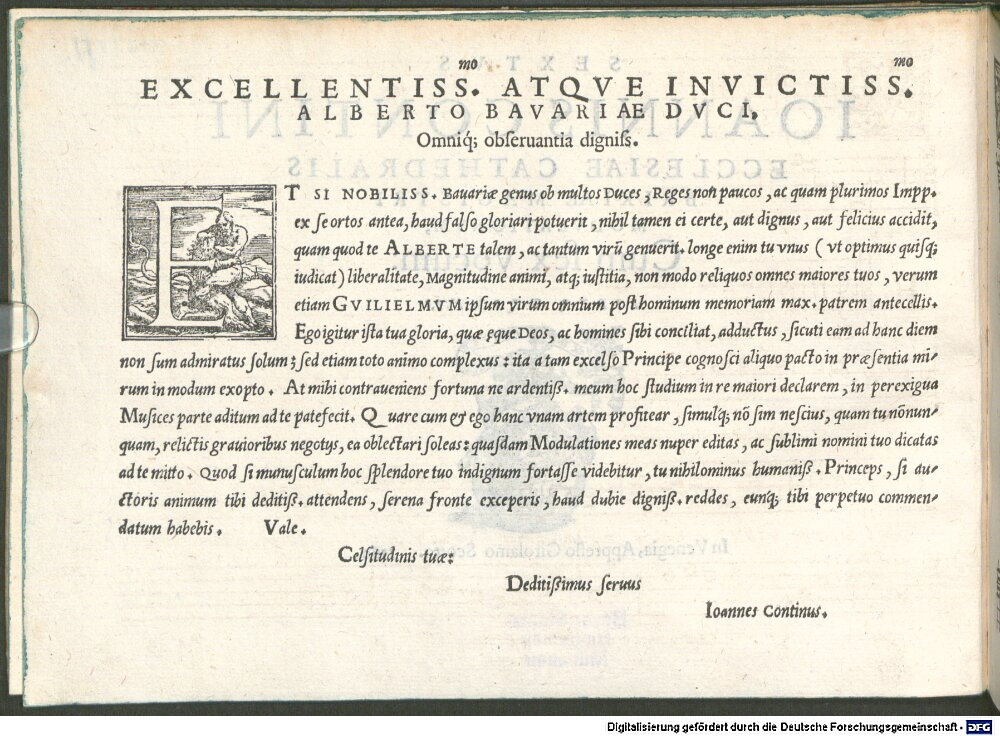 EXCELLENTISS.mo ATQVE INVICTISS.mo
ALBERTO BAVARIAE DVCI,
Omniq́; obſeruantia digniſs.
ET SI NOBILISS. Bauariæ genus ob multos Duces, Reges non paucos, ac quam plurimos Impp.
ex ſe ortos antea, haud falſo gloriari potuerit, nihil tamen ei certe, aut dignus, aut felicius accidit,
quam quod te ALBERTE talem, ac tantum virũ genuerit. longe enim tu vnus ( vt optimus quiſq;
iudicat) liberalitate, Magnitudine animi, atq; iuſtitia, non modo reliquos omnes maiores tuos, verum
etiam GVILIELMVM ipſum virum omnium poſt hominum memoriam max. patrem antecellis.
Ego igitur iſta tua gloria, quæ ęque Deos, ac homines ſibi conciliat, adductus, ſicuti eam ad hanc diem
non ſum admiratus ſolum; ſed etiam toto animo complexus: ita a tam excelſo Principe cognoſci aliquo pacto in præſentia mi-
rum in modum exopto. At mihi contraueniens fortuna ne ardentiß. meum hoc ſtudium in re maiori declarem, in perexigua
Muſices parte aditum ad te patefecit. Quare cum & ego hanc vnam artem profitear, ſimulq́; nõ ſim neſcius, quam tu nõnun-
quam, relictis grauioribus negotys, ea oblectari ſoleas: quaſdam Modulationes meas nuper editas, ac ſublimi nomini tuo dicatas
ad te mitto. Quod ſi munuſculum hoc ſplendore tuo indignum fortaſſe videbitur, tu nihilominus humaniß. Princeps, ſi au-
ctoris animum tibi deditiß. attendens, ſerena fronte exceperis, haud dubie digniß. reddes, eunq́; tibi perpetuo commen-
datum habebis. Vale.
Celſitudinis tuæ:
Deditißimus ſeruus
Ioannes Continus.
Digitalisierung gefördert durch die Deutsche Forschungsgemeinschaft - DFG